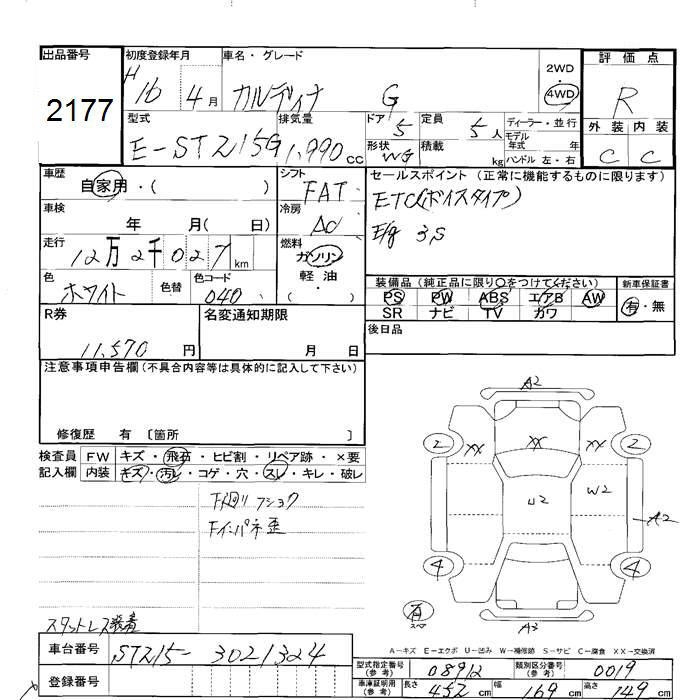 出品番号 初度登録年月 車名・グレード 評価点
2177 H 10 4 月 カルディナ G 2WD 4WD R
型式 排気量 ドア 5 定員 5 人 ディーラー・並行
E-ST215G 1,990 cc 形状 WG 積載 kg モデル年式 年 外装 内装
ハンドル 左・右 C C
車歴 自家用・( ) シフト FAT セールスポイント (正常に機能するものに限ります)
車検 年 月( 日) 冷房 AC ETC(ボイスタイプ)
走行 12万2千027 km 燃料 ガソリン E/g 3S
色 ホワイト 色替 色コード 040 軽油・ ( )
装備品(純正品に限り○をつけてください) 新車保証書
PS PW ABS エアB AW 有・無
SR ナビ TV カワ
R券 名変通知期限 後日品
11,570 円 月 日
注意事項申告欄(不具合内容等は具体的に記入して下さい)
修復歴 有 〔箇所 〕
検査員 FW キズ・飛石・ヒビ割・リペア跡・×要
記入欄 内装 キズ・汚レ・コゲ・穴・スレ・キレ・破レ
F廻リ
Fインパネ歪
A2
2 XX XX XX 2
U2 W2
A2
4 4
有
A3
スタットレス装着
A-キズ E-エクボ U-凹み W-補修跡 S-サビ C-腐食 XX-交換済
車台番号 ST215-3021324
型式指定番号(参考) 08912 類別区分番号(参考) 0019
登録番号
車庫証明用(参考) 長さ 452 cm 幅 169 cm 高さ 149 cm